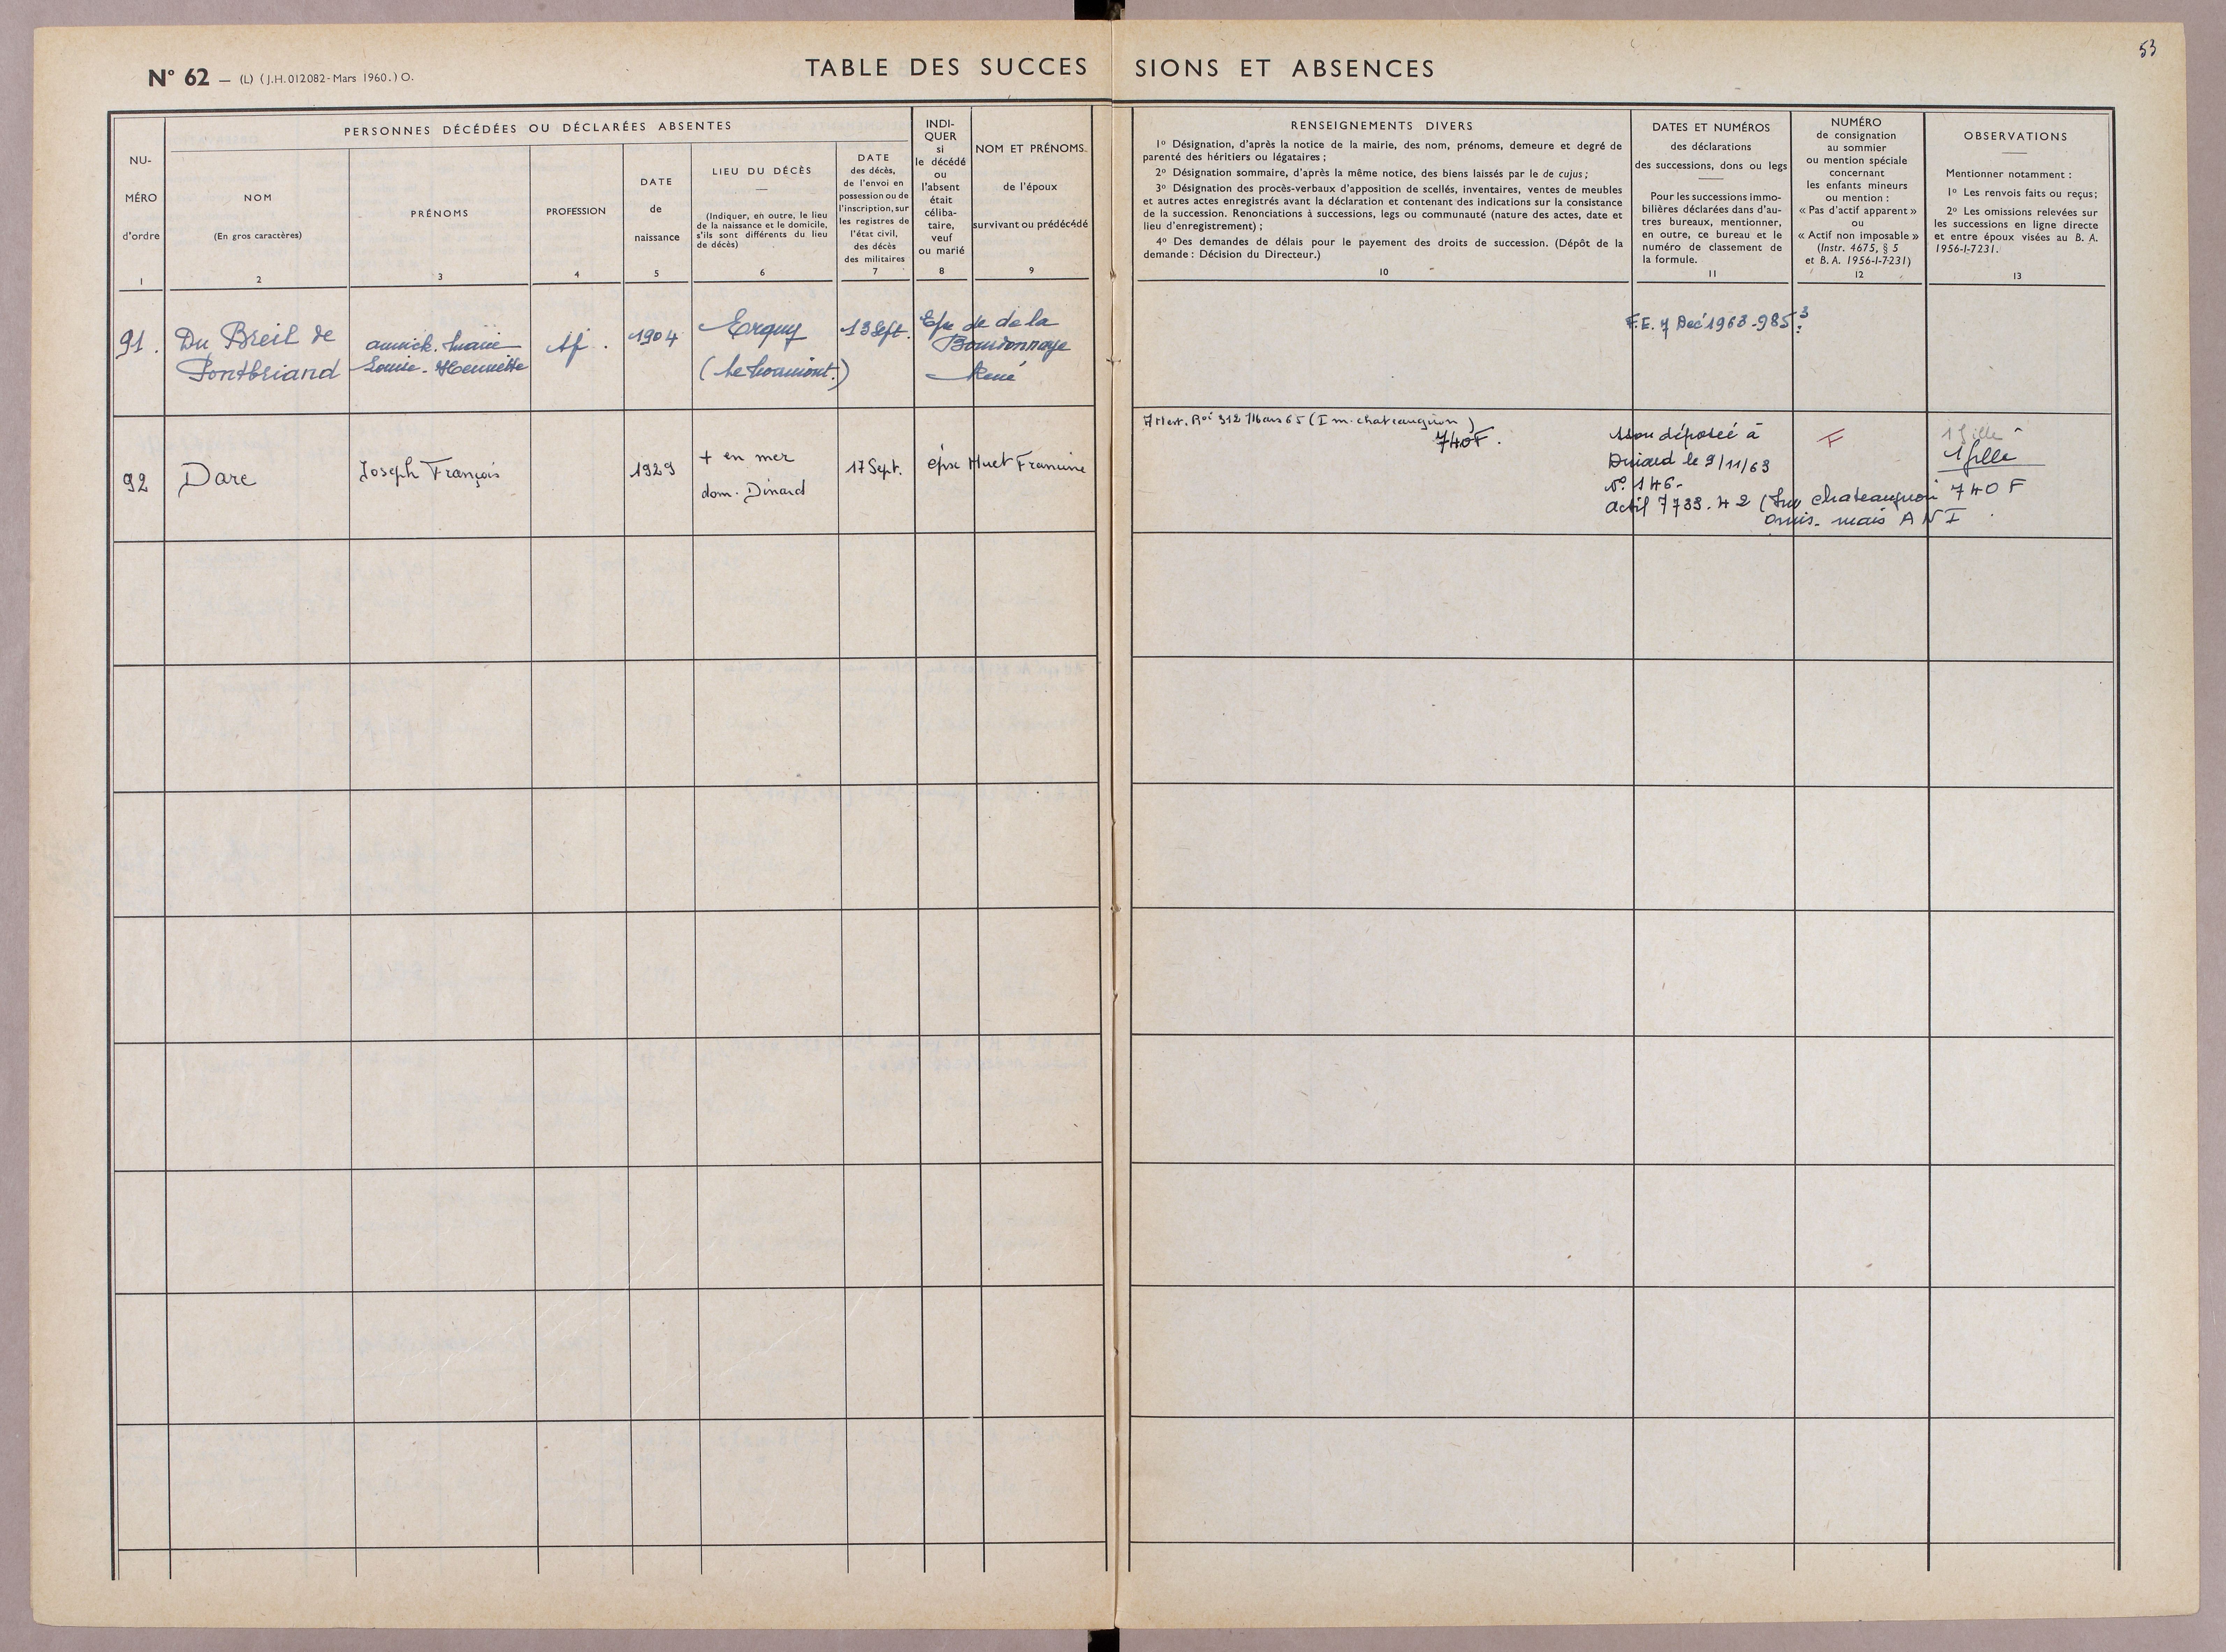 53
N° 62 — (L) (J.H. 012082 - Mars 1960.) O.
TABLE DES SUCCES SIONS ET ABSENCES
NU-
MÉRO
d'ordre
1
PERSONNES DÉCÉDÉES OU DÉCLARÉES ABSENTES
NOM
(En gros caractères)
2
PRÉNOMS
3
PROFESSION
4
DATE
de
naissance
5
LIEU DU DÉCÈS
(Indiquer, en outre, le lieu
de la naissance et le domicile,
s'ils sont différents du lieu
de décès)
6
DATE
des décès,
de l'envoi en
possession ou de
l'inscription, sur
les registres de
l'état civil,
des décès
des militaires
7
INDI-
QUER
si
le décédé
ou
l'absent
était
céliba-
taire,
veuf
ou marié
8
NOM ET PRÉNOMS
de l'époux
survivant ou prédécédé
9
RENSEIGNEMENTS DIVERS
1° Désignation, d'après la notice de la mairie, des nom, prénoms, demeure et degré de
parenté des héritiers ou légataires ;
2° Désignation sommaire, d'après la même notice, des biens laissés par le de cujus ;
3° Désignation des procès-verbaux d'apposition de scellés, inventaires, ventes de meubles
et autres actes enregistrés avant la déclaration et contenant des indications sur la consistance
de la succession. Renonciations à successions, legs ou communauté (nature des actes, date et
lieu d'enregistrement) ;
4° Des demandes de délais pour le payement des droits de succession. (Dépôt de la
demande : Décision du Directeur.)
10
DATES ET NUMÉROS
des déclarations
des successions, dons ou legs
Pour les successions immo-
bilières déclarées dans d'au-
tres bureaux, mentionner,
en outre, ce bureau et le
numéro de classement de
la formule.
11
NUMÉRO
de consignation
au sommier
ou mention spéciale
concernant
les enfants mineurs
ou mention :
« Pas d'actif apparent »
ou
« Actif non imposable »
(Instr. 4675, § 5
et B. A. 1956-I-7-231)
12
OBSERVATIONS
Mentionner notamment :
1° Les renvois faits ou reçus ;
2° Les omissions relevées sur
les successions en ligne directe
et entre époux visées au B. A.
1956-I-7231.
13
91.
Du Breil de
Pontbriand
Annick. Marie
Louise. Henriette
1904
Erquy
13 Sept.
Epse de de la
Bourdonnaye
René
F.E. 7 Dec 1963 - 985
92
Dare
Joseph François
1929
+ en mer
dom. Dinard
17 Sept.
épse Huet Francine
312 7 Mars 65
740F.
déposée à
Dinard le 9/11/63
N° 146-
actif 7733.42
740 F
omis. mais A N I
F
1 fille
1 fille